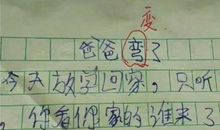 变
爸爸弯了
今天放学回家,只听
,你看你家的谁来了